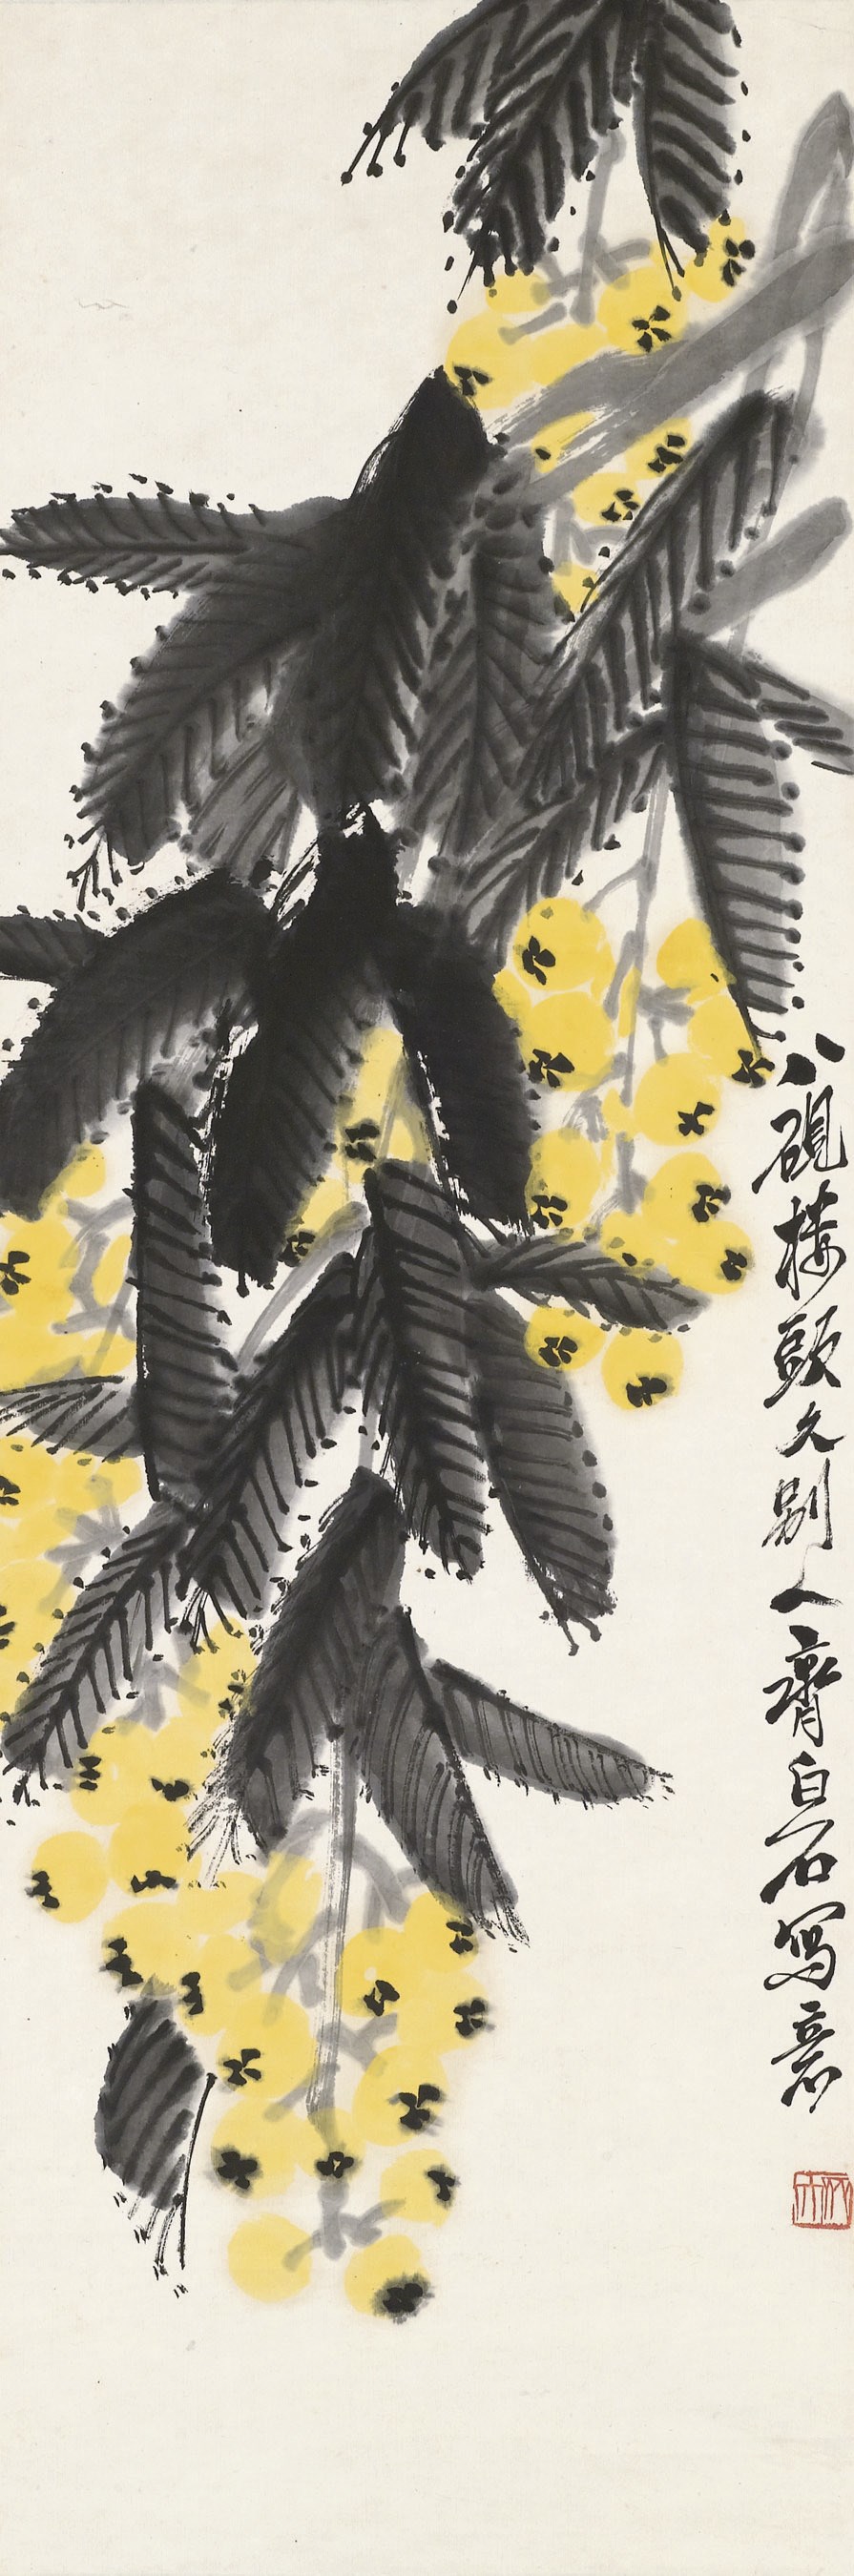 八硯樓頭久別人齊白石寫意
木人